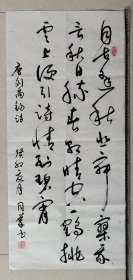 自古逢秋悲寂寥我
言秋日胜春朝晴空一鹤排
云上便引诗情到碧霄
唐刘禹锡诗 癸卯夏月
书